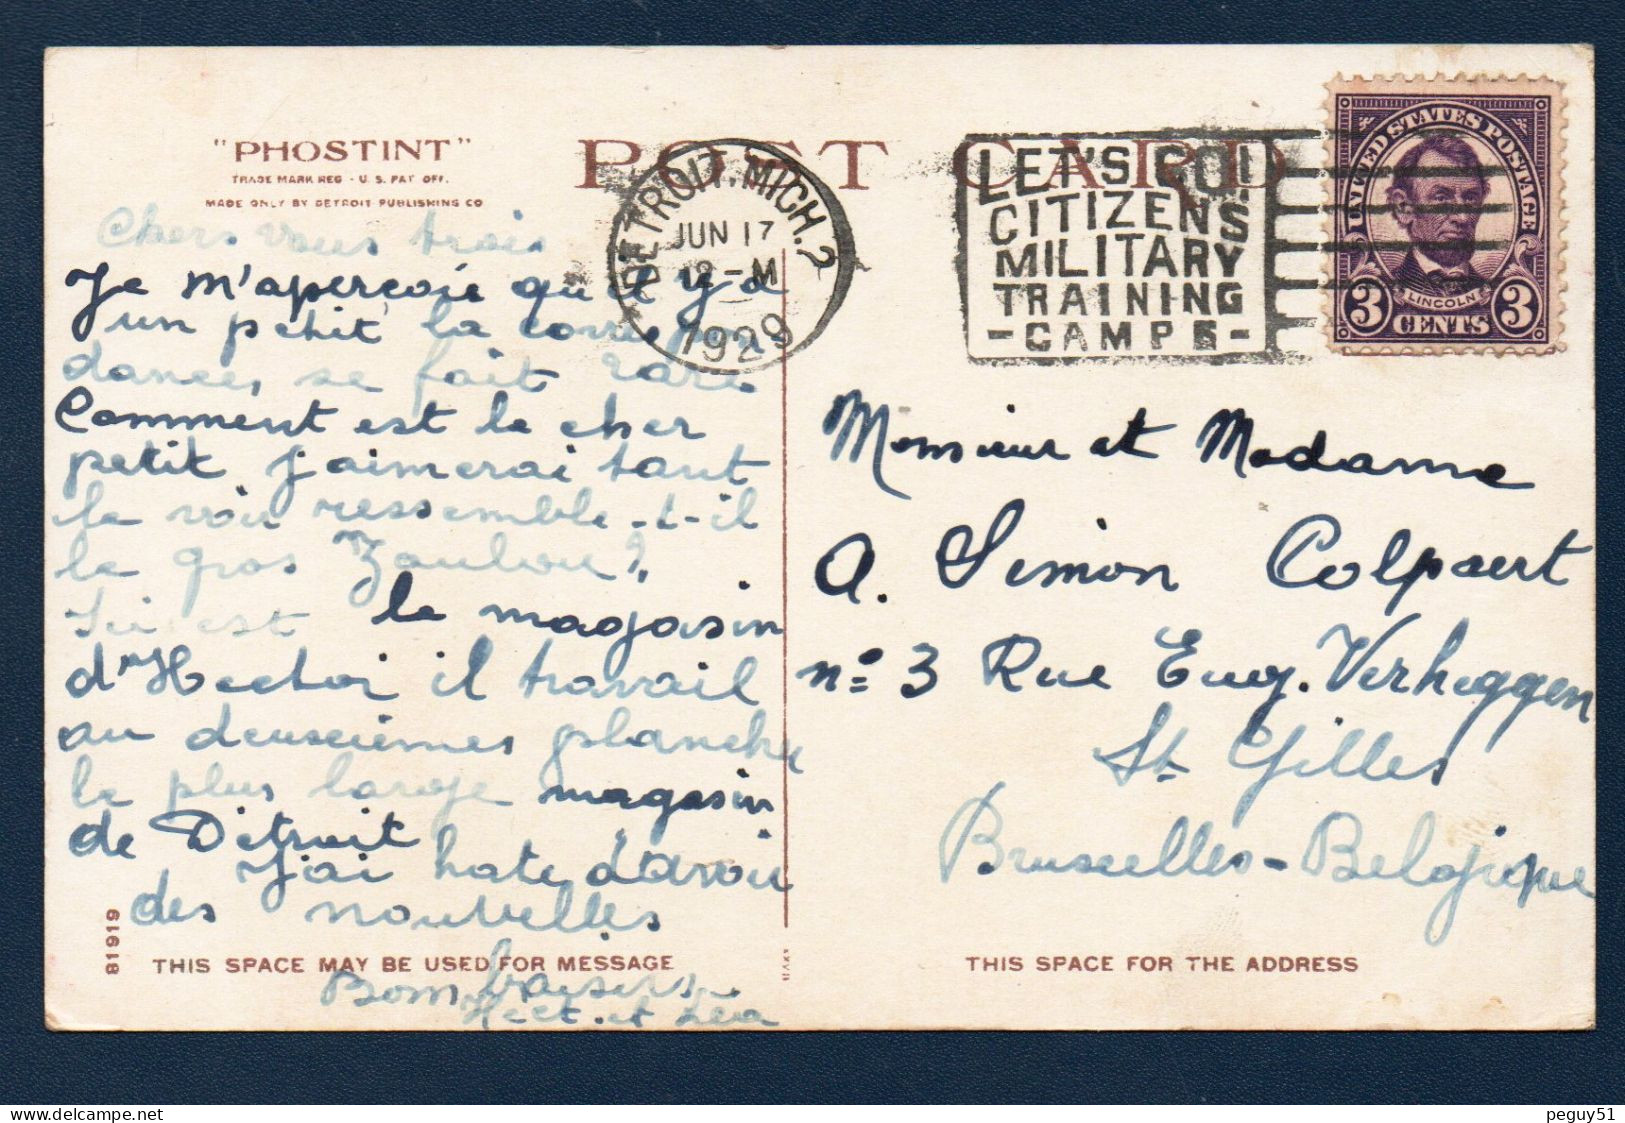 "PHOSTINT"
TRADE MARK REG - U.S. PAT OFF.
MADE ONLY BY DETROIT PUBLISHING CO
POST CARD
DETROIT, MICH. 2
JUN 17
12 - M
1929
LET'S GO!
CITIZENS
MILITARY
TRAINING
- CAMPS -
UNITED STATES POSTAGE
LINCOLN
3 CENTS 3
Chers vous trois
Je m'aperçois qu'il y a
un petit, la correspon
dances, se fait rare
Comment est le cher
petit j'aimerai tant
le voir ressemble-t-il
le gros Zoulou?
Ici est le magasin
d'Hector il travail
au deuxièmes planche
le plus large magasin
de Détroit
J'ai hate d'avoir
des nouvelles
Bom baisers
Hect. et Léa
Monsieur et Madame
A. Simon Colpaert
n° 3 Rue Eug. Verheggen
St Gilles
Bruxelles - Belgique
81919
THIS SPACE MAY BE USED FOR MESSAGE
THIS SPACE FOR THE ADDRESS
peguy51